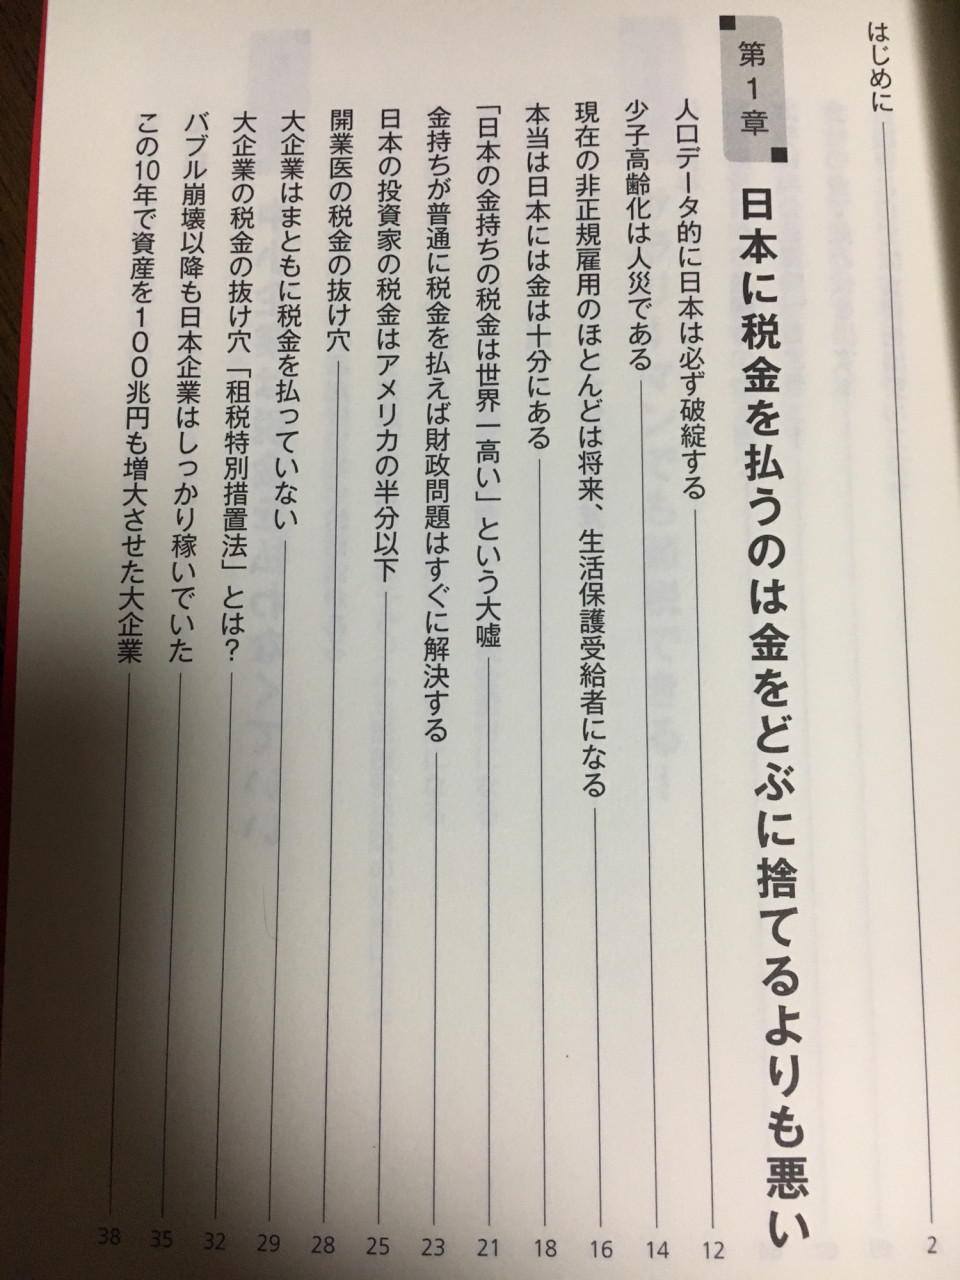 はじめに 2
第1章 日本に税金を払うのは金をどぶに捨てるよりも悪い
人口データ的に日本は必ず破綻する 12
少子高齢化は人災である 14
現在の非正規雇用のほとんどは将来、生活保護受給者になる 16
本当は日本には金は十分にある 18
「日本の金持ちの税金は世界一高い」という大嘘 21
金持ちが普通に税金を払えば財政問題はすぐに解決する 23
日本の投資家の税金はアメリカの半分以下 25
開業医の税金の抜け穴 28
大企業はまともに税金を払っていない 29
大企業の税金の抜け穴「租税特別措置法」とは? 32
バブル崩壊以降も日本企業はしっかり稼いでいた 35
この10年で資産を100兆円も増大させた大企業 38